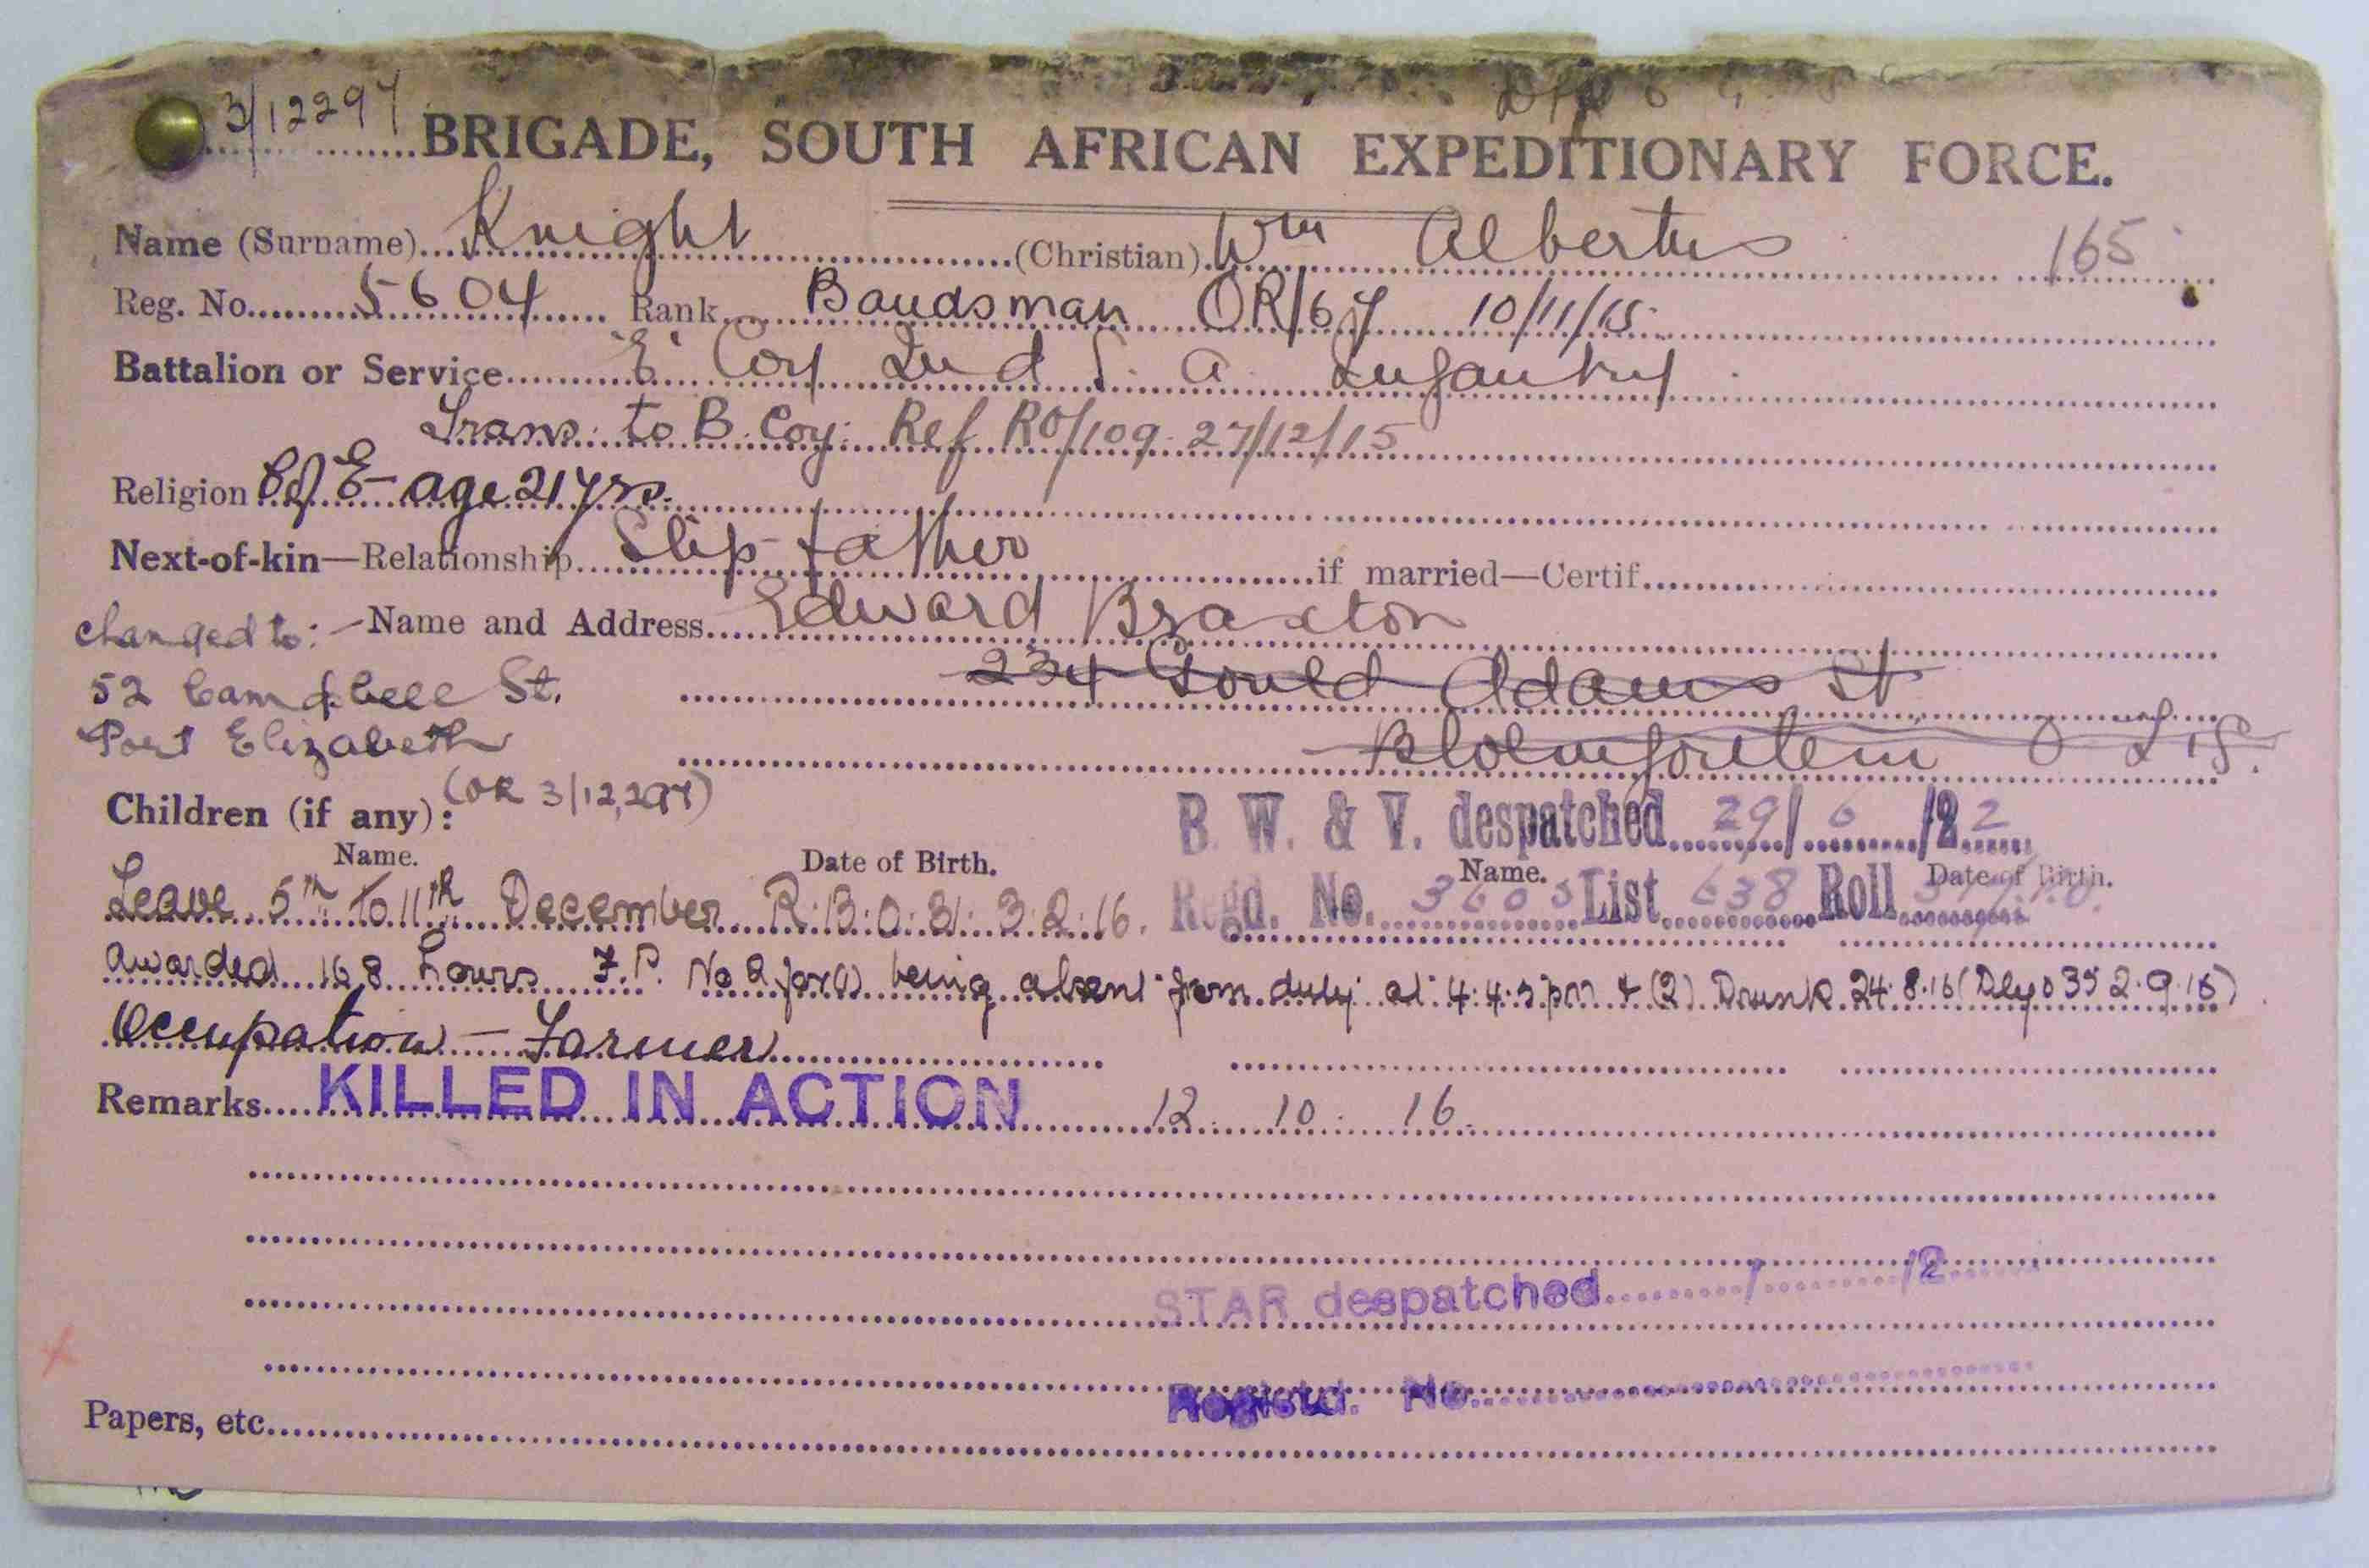 3/12297
BRIGADE, SOUTH AFRICAN EXPEDITIONARY FORCE.
Name (Surname) Knight (Christian) Wm Albertus 165
Reg. No. 5604 Rank Bandsman OR/67 10/11/15
Battalion or Service 'E' Coy 2nd S. A. Infantry
Trans. to B. Coy. Ref RO/109. 27/12/15
Religion C of E - age 21 yrs.
Next-of-kin—Relationship Step father if married—Certif.
changed to: - Name and Address Edward Braxton
52 Campbell St. 234 Gould Adams St
Port Elizabeth Bloemfontein
(OR 3/12,297)
Children (if any):
B. W. & V. despatched 29/6/22
Name. Date of Birth. Name. Date of Birth.
Leave 5th to 11th December R.B.O. 31. 3.2.16. Regd. No. 3605 List 638 Roll
Awarded 168 hours F.P. No 2 for (1) being absent from duty at 4.45 pm & (2) Drunk 24.8.16 (Dly o 35 2.9.16)
Occupation — Farmer
Remarks KILLED IN ACTION 12. 10. 16.
STAR despatched / /2
Registd. No.
Papers, etc.